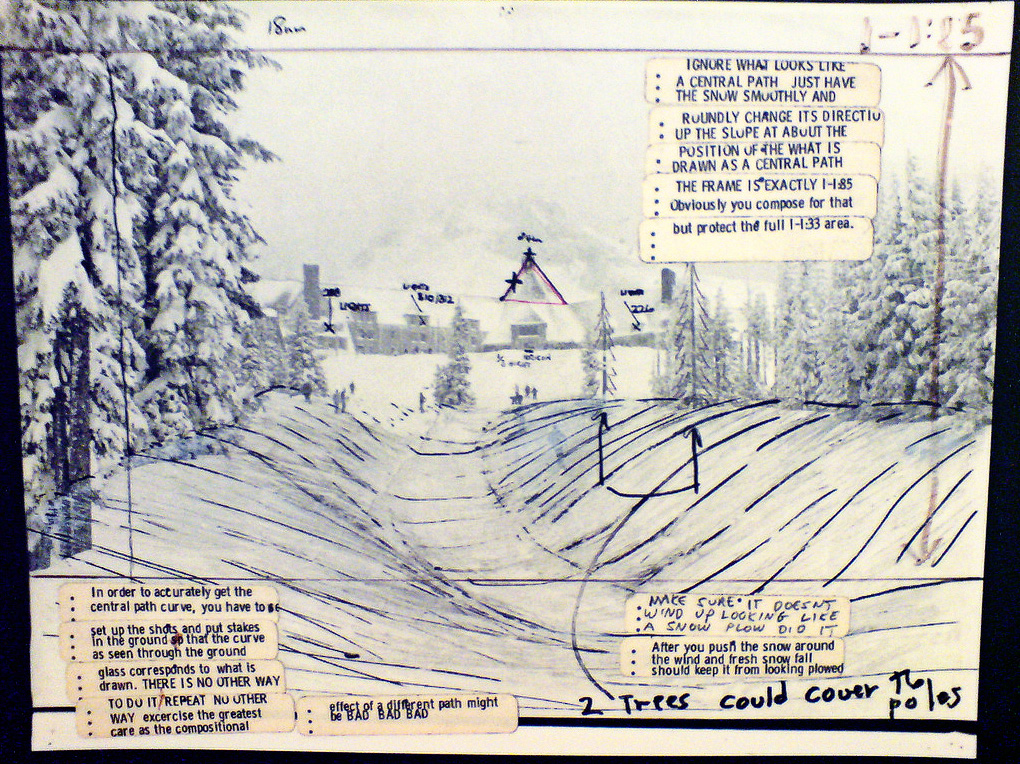 18mm
1-1:85
IGNORE WHAT LOOKS LIKE
A CENTRAL PATH JUST HAVE
THE SNOW SMOOTHLY AND
ROUNDLY CHANGE ITS DIRECTIO
UP THE SLOPE AT ABOUT THE
POSITION OF THE WHAT IS
DRAWN AS A CENTRAL PATH
THE FRAME IS EXACTLY 1-1:85
Obviously you compose for that
but protect the full 1-1:33 area.
LIGHTS
LIGHTS
210/212
226
In order to accurately get the
central path curve, you have to se
set up the shots and put stakes
in the ground so that the curve
as seen through the ground
glass corresponds to what is
drawn. THERE IS NO OTHER WAY
TO DO IT/REPEAT NO OTHER
WAY excercise the greatest
care as the compositional
effect of a different path might
be BAD BAD BAD
MAKE SURE IT DOESNT
WIND UP LOOKING LIKE
A SNOW PLOW DID IT
After you push the snow around
the wind and fresh snow fall
should keep it from looking plowed
2 Trees could cover the
poles